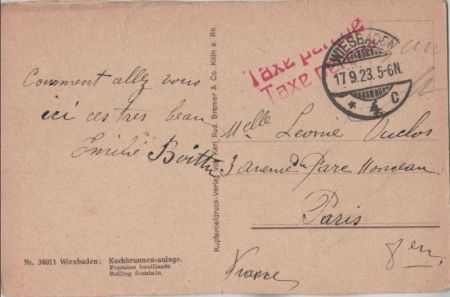 Comment allez vous
ici ces tres beau
Emilie
Taxe perçue
Taxe
WIESBADEN
17.9.23. 5-6N.
* 4 C
Melle Leonie Duclos
3 avenue du Parc Monceau
Paris
8em
France
Kupfertiefdruck-Verlag von Karl Rud. Bremer & Co. Köln a. Rh.
Nr. 34011 Wiesbaden: Kochbrunnen-anlage.
Fontaine bouillante
Boiling fountain